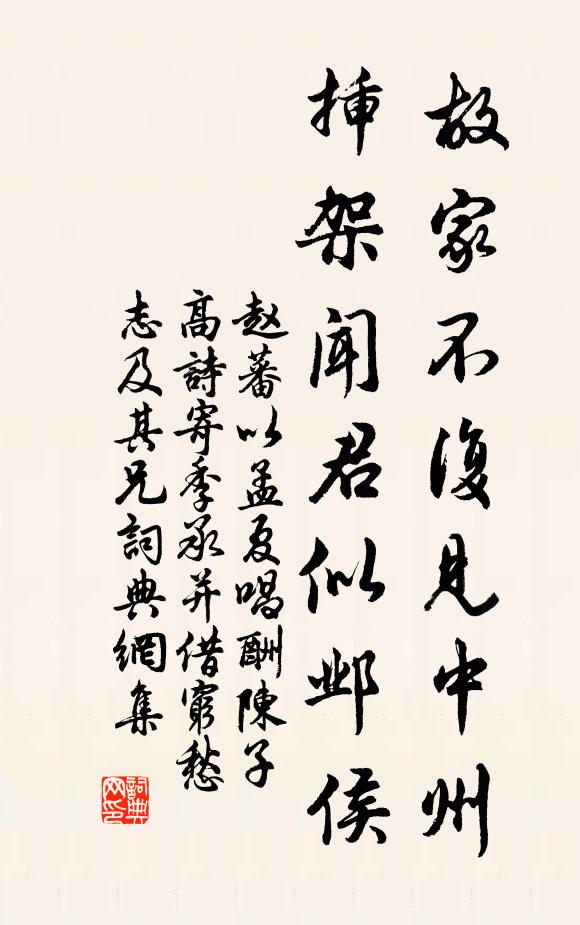 故家不復見中州
插架聞君似邺侯
赵蕃以孟夏唱酬陳子
高詩寄季承并借窮愁
志及其兄詞典網集
詞典
网印